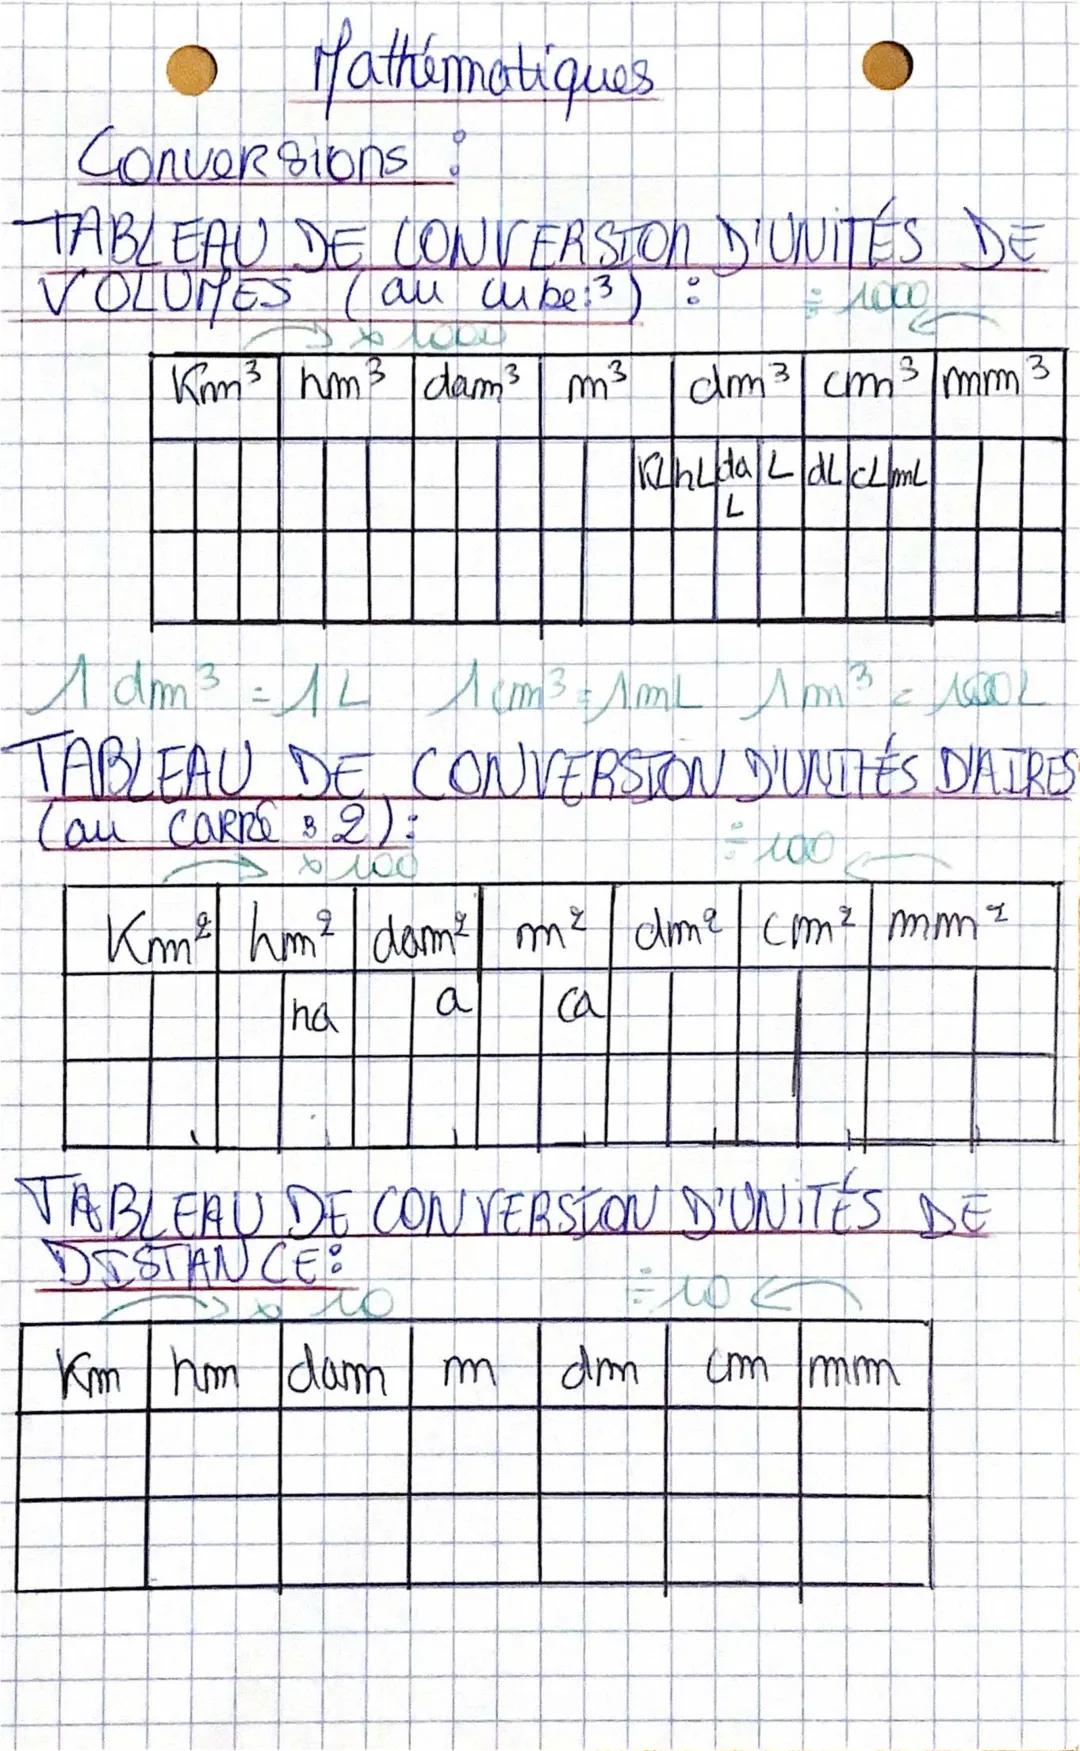 Mathématiques
Conversions :
TABLEAU DE CONVERSION D'UNITÉS DE
VOLUMES (au cube:3) : ÷ 1000
x 1000
Km³ hm³ dam³ m³ dm³ cm³ mm³
KL hL da L dL cL mL
L
1 dm³ = 1L 1cm³=1mL 1m³ = 1000L
TABLEAU DE CONVERSION D'UNITÉS D'AIRES
(au CARRÉ : 2) :
x 100 ÷ 100
Km² hm² dam² m² dm² cm² mm²
ha a ca
TABLEAU DE CONVERSION D'UNITÉS DE
DISTANCE:
x 10 ÷ 10
Km hm dam m dm cm mm